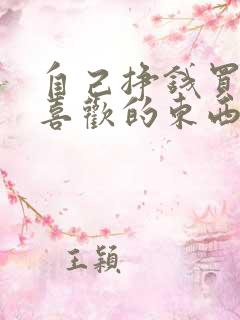 自己挣錢買
喜歡的東西
王穎